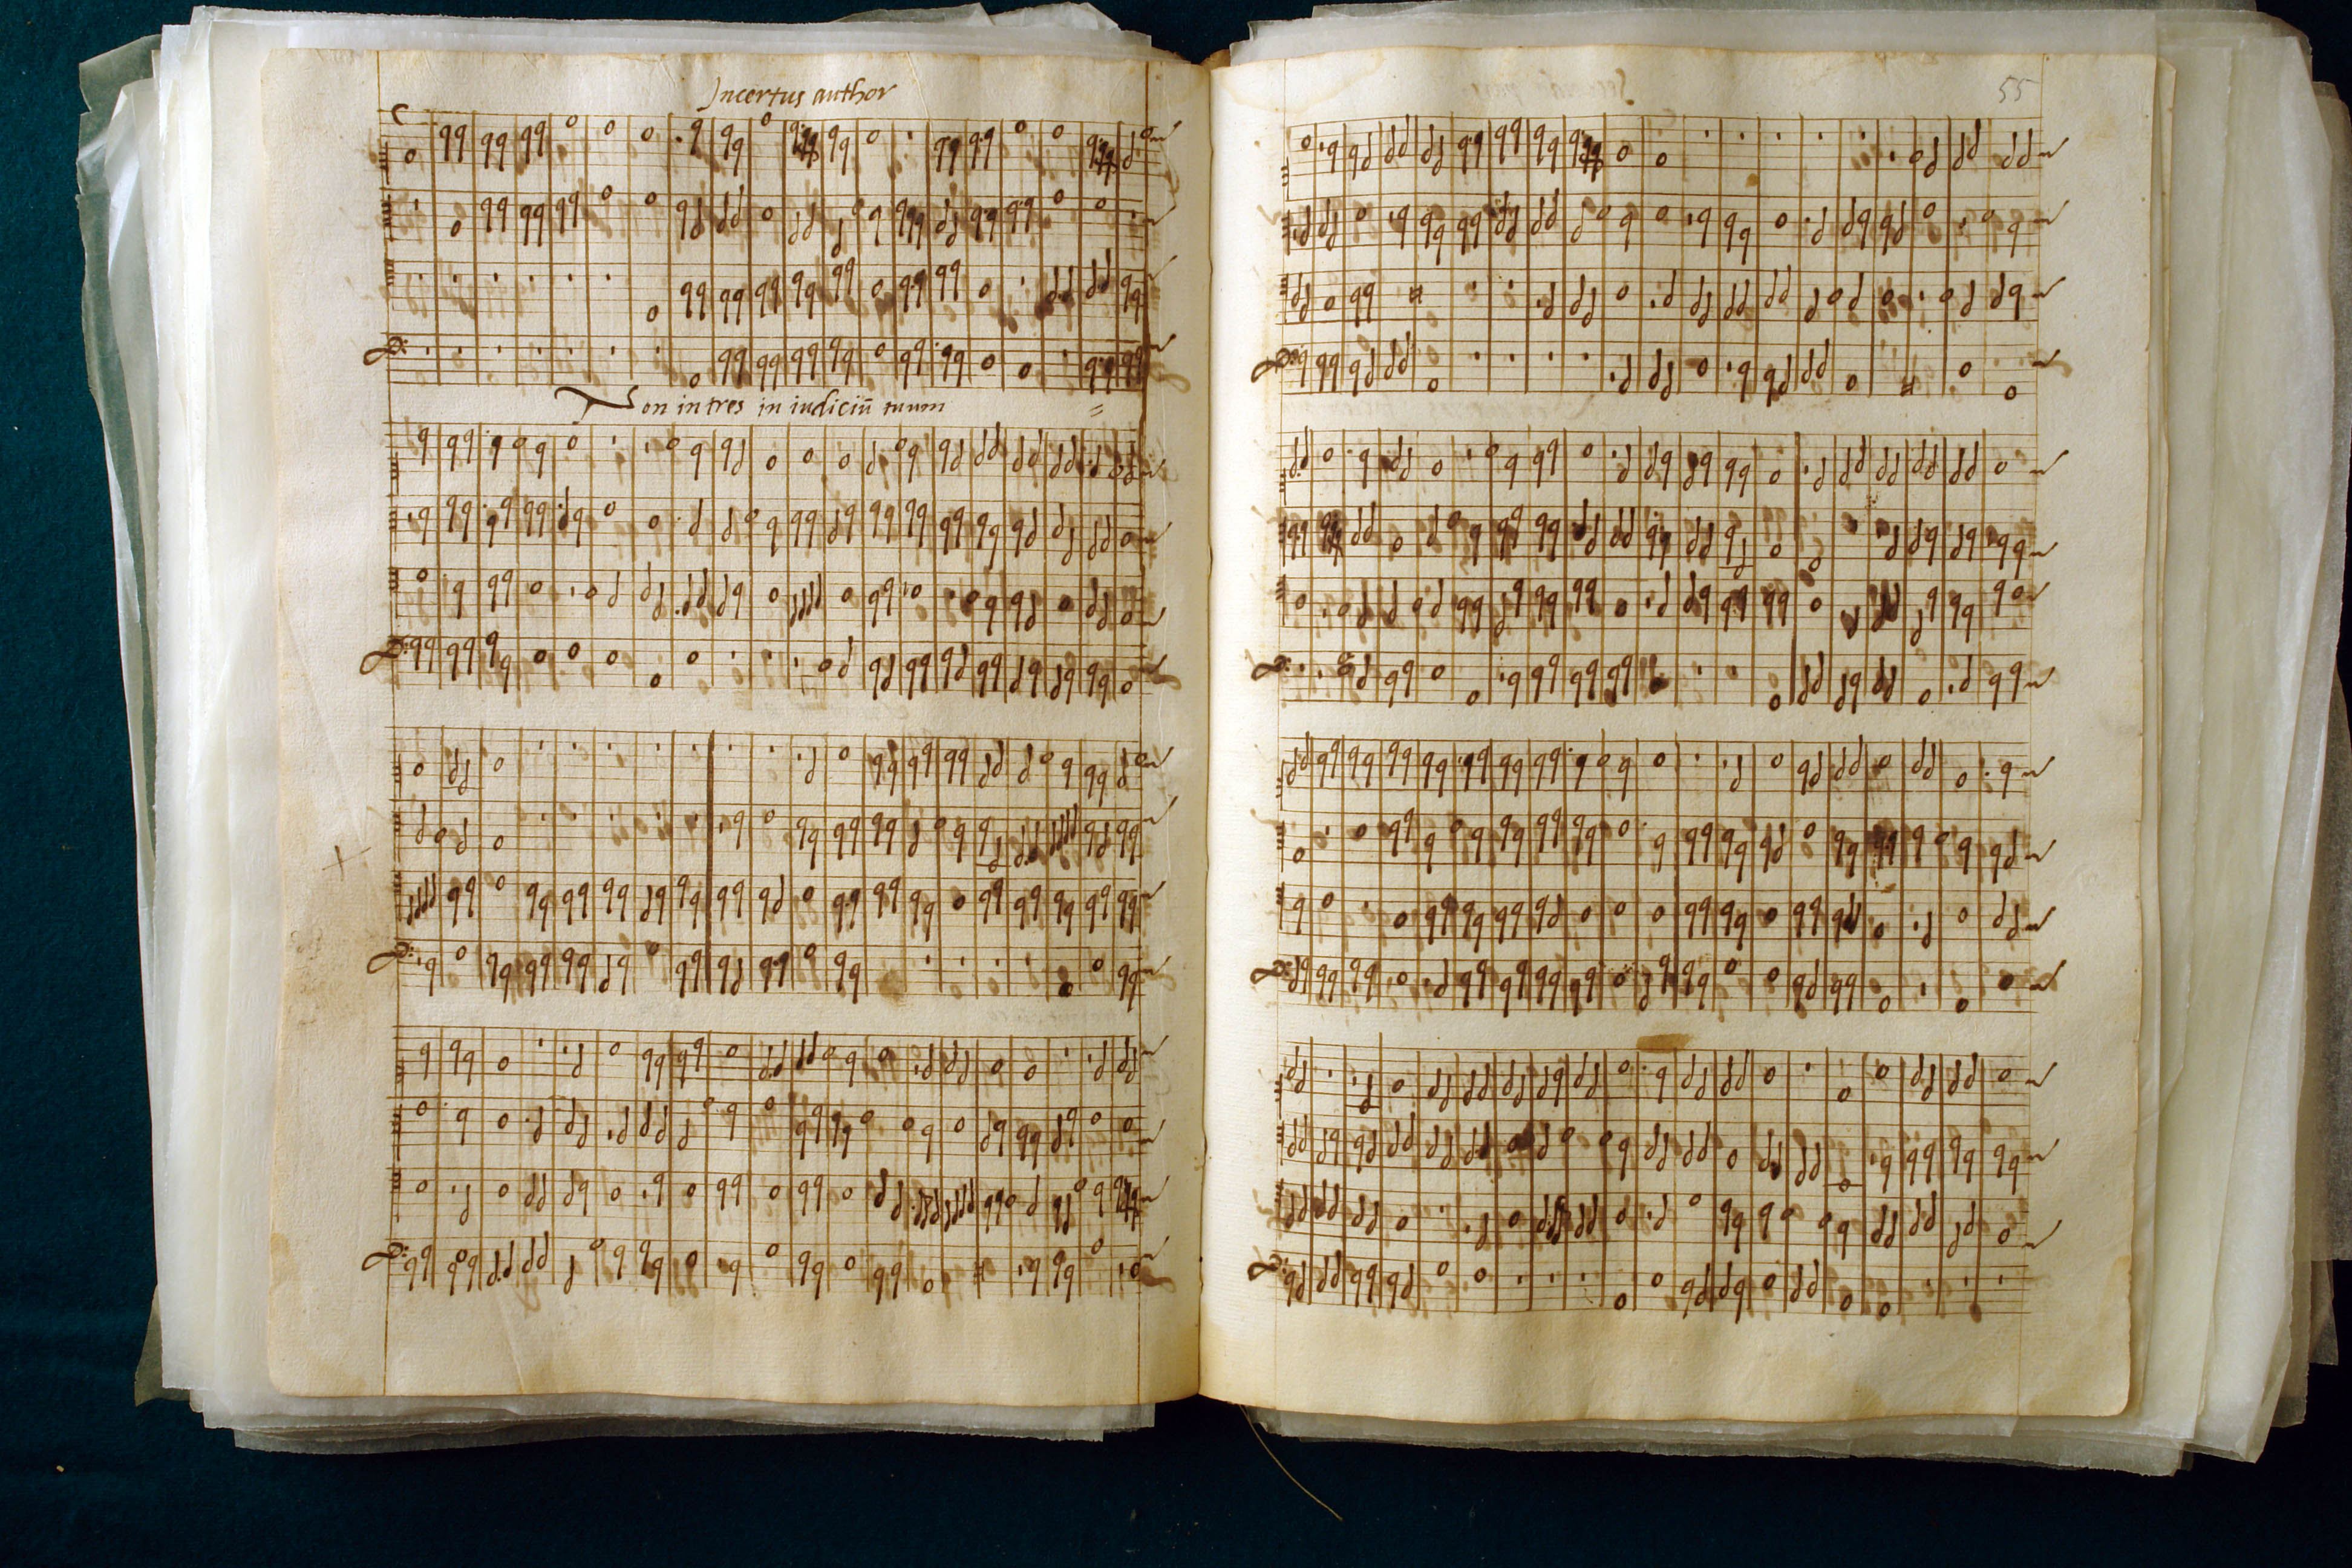 Incertus author
Non intres in iudiciū tuum
55